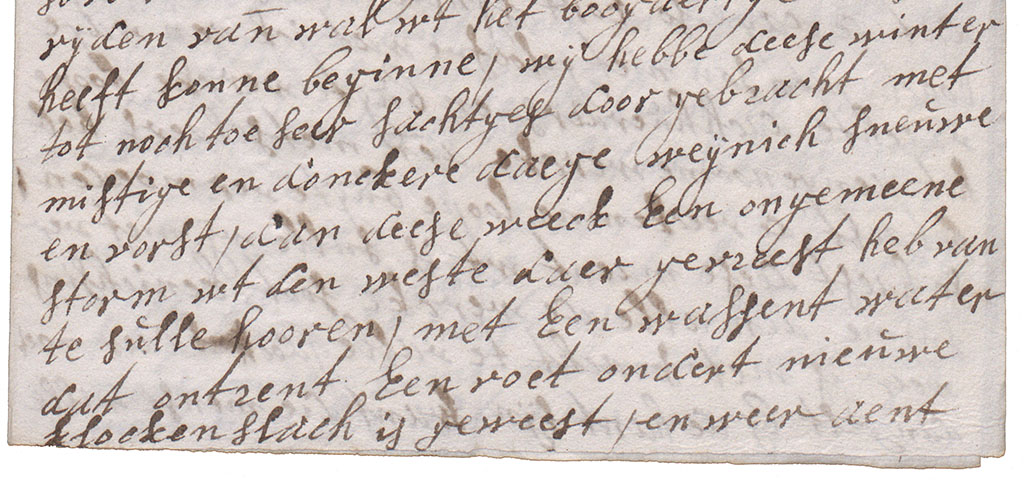 rijden van wal wt het
heeft konne beginne, wij hebbe deese winter
tot noch toe seer sachtges door gebracht met
mistige en donckere daege weijnich sneuwe
en vorst, dan deese weeck Een ongemeene
storm wt den weste daer gevreest heb van
te sulle hooren, met Een wassent water
dat ontrent Een voet ondert nieuwe
klockenslach is geweest, en weer aent